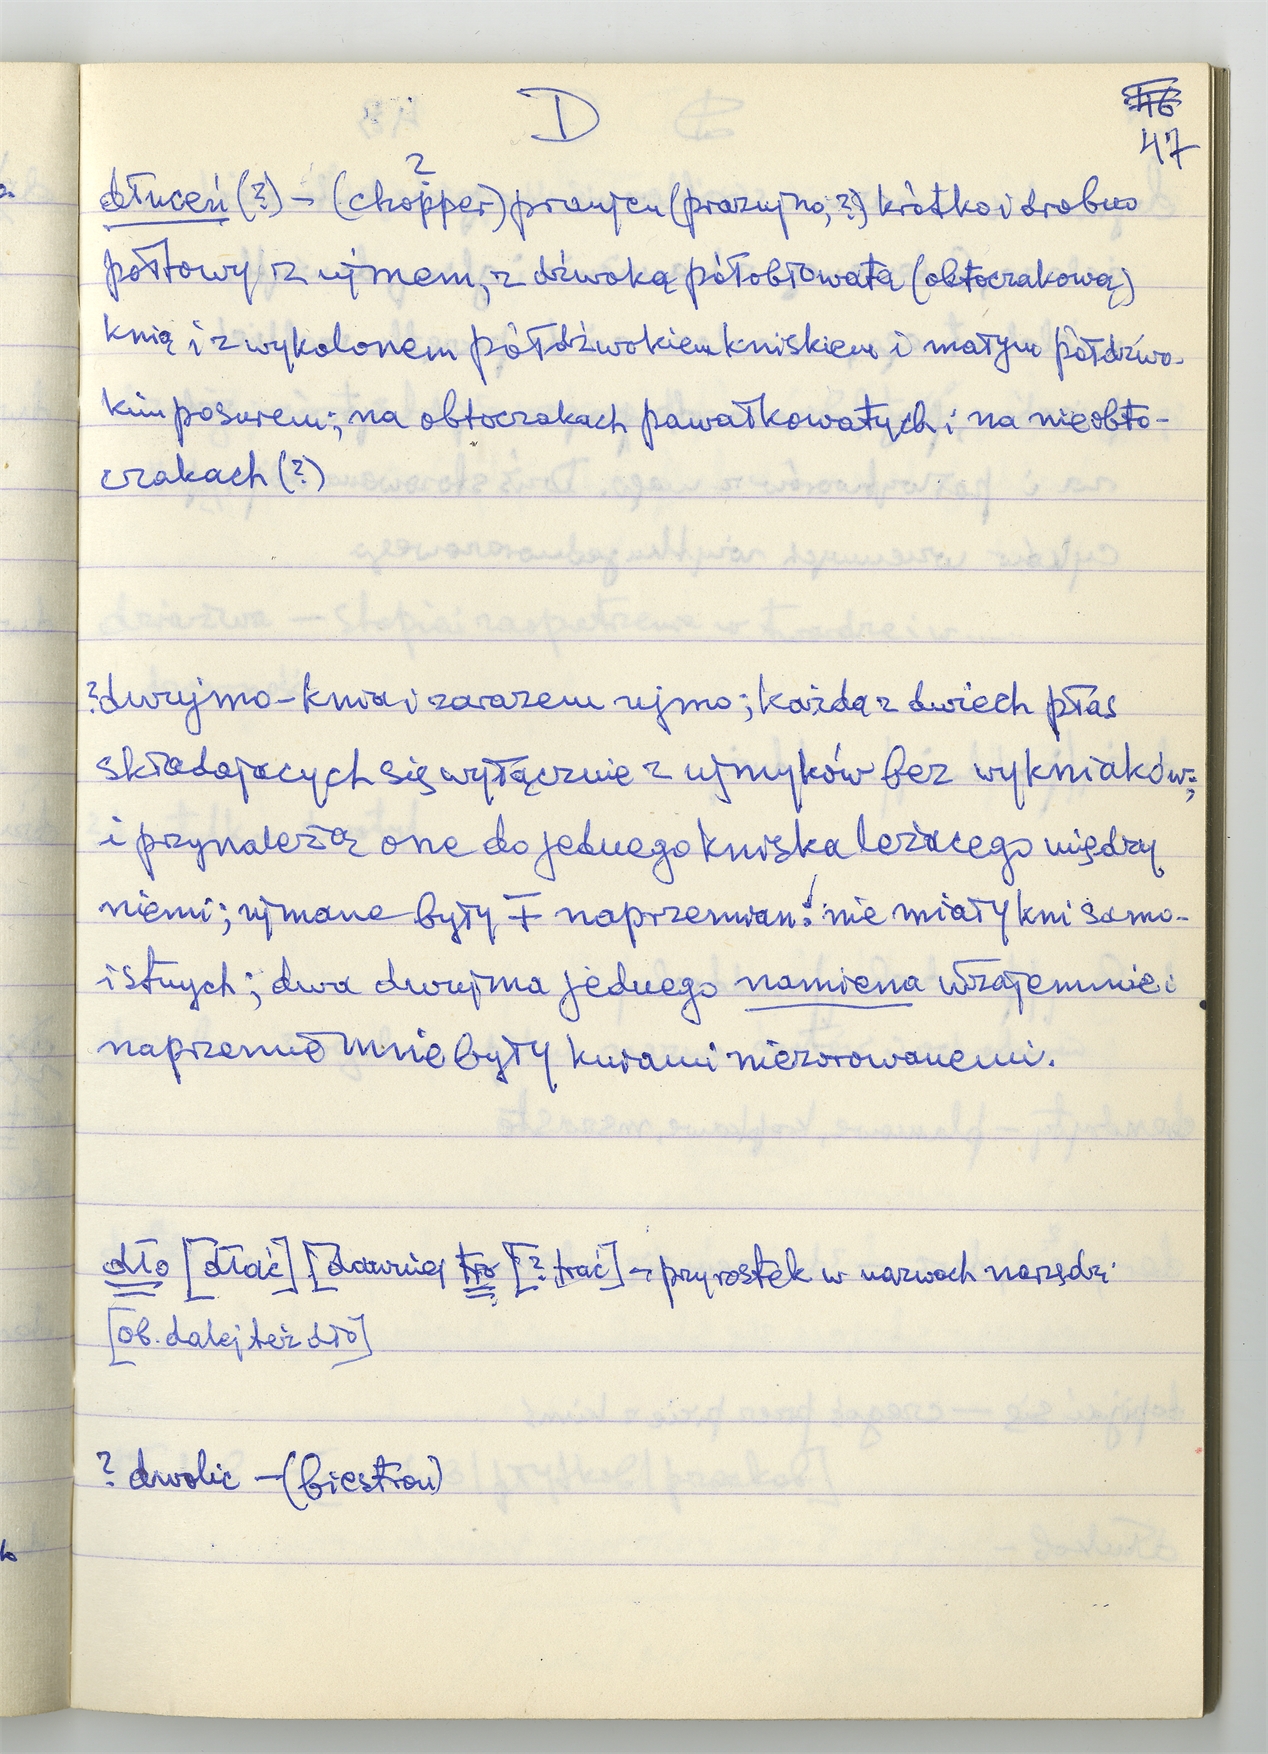 D
47
?
dłuceń (?) – (chopper) praujcu (praujno, ?) krótko i drobno
połtowy z ujmem, z dźwoką półobłowatą (obtoczakową)
knią i z wykolonem półdźwokiem kniskiem i małym półdźwo-
kim posurem; na obtoczakach pawałkowatych i na nieobto-
czakach (?)
? dwujmo – knia i zarazem ujmo; każda z dwiech płas
składających się wyłącznie z ujmyków bez wykniaków;
i przynależą one do jednego kniska leżącego między
niemi; ujmane były ∓ naprzemian! nie miały kni samo-
istnych; dwa dwujma jednego namiena wzajemnie i
naprzemiennie były kurami niezorowanemi.
dło [dłać] [dawniej tro [? trać] – przyrostek w nazwach narzędzi
[ob. dalej też dło]
? dwolic – (biestron)